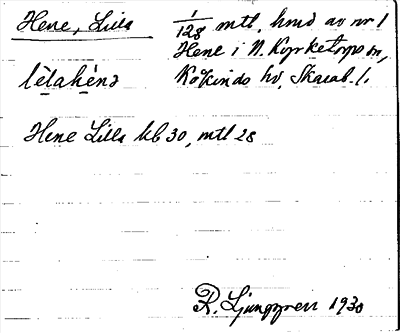 Hene, Lilla
1/128 mtl. hmd av nr 1
Hene i N. Kyrketorps sn,
Kåkinds hd, Skarab. l.
lìlahènə
Hene Lilla kb 30, mtl 28
R. Ljunggren 1930